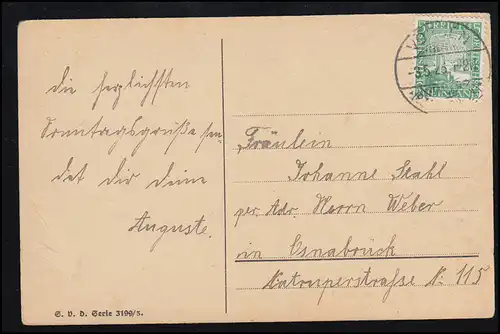 die herzlichsten
Sonntagsgrüße sen-
det dir deine
Auguste.
Fräulein
Johanne Stahl
per Adr. Herrn Weber
in Osnabrück
Natruperstrasse No 115
S. V. D. Serie 3199/5.